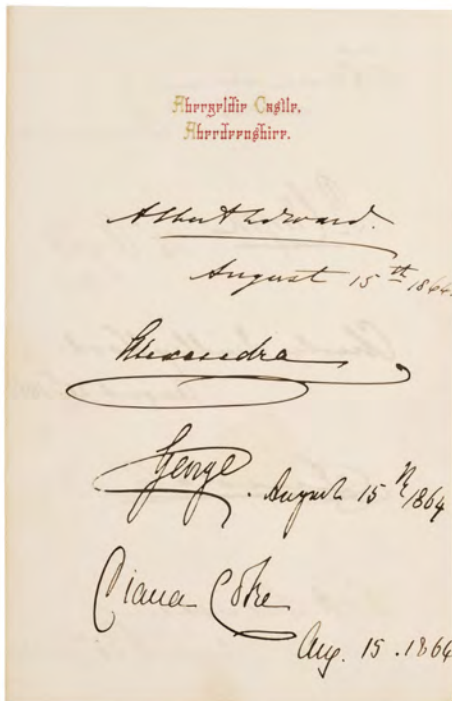 Abergeldie Castle,
Aberdeenshire.
Albert Edward.
August 15th 1864.
Alexandra
George
. August 15th 1864
Diana Coke
Aug. 15. 1864